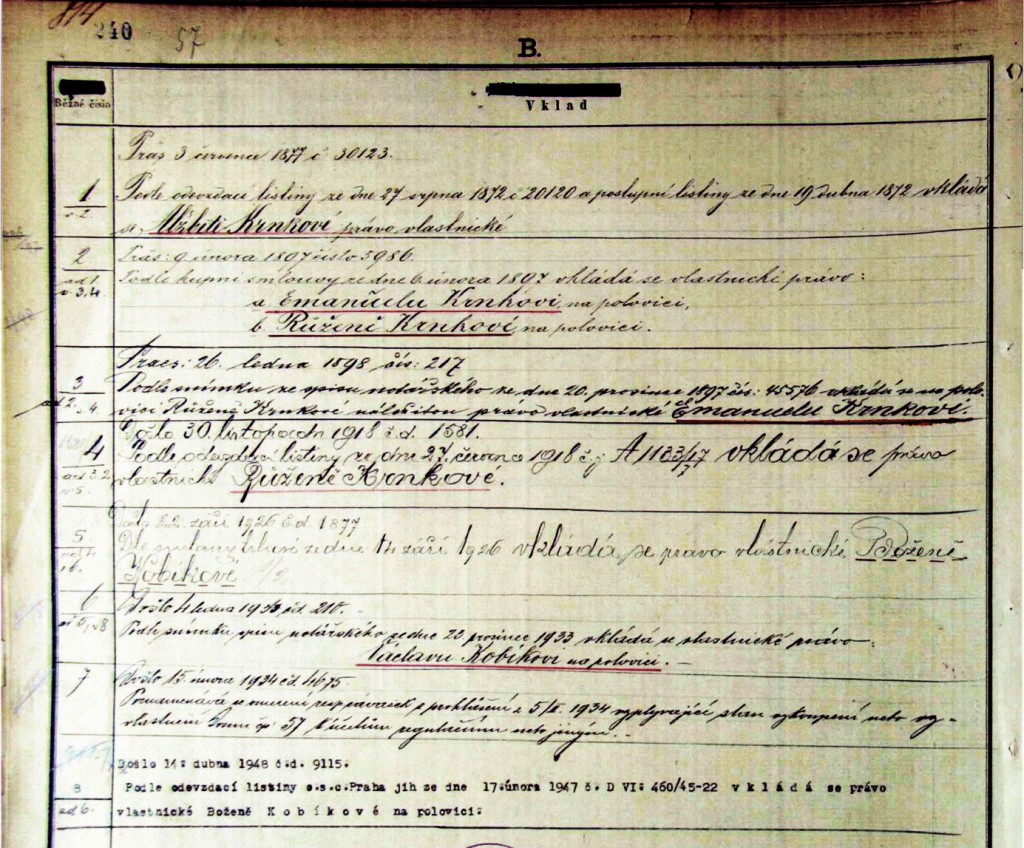 240
57
B.
Běžné číslo
Vklad
Präs 3 června 1877 č 30123.
1
Podle odevzdací listiny ze dne 27 srpna 1872 č 20120 a postupní listiny ze dne 19 dubna 1872 vkládá
se Krnkové právo vlastnické
2
Präs: 9 února 1897 číslo 5986.
Podle kupní smlouvy ze dne 6. února 1897 vkládá se vlastnické právo:
ad 1
v. 3,4.
a Emanuelu Krnkovi na polovici,
b Růženě Krnkové na polovici.
Praes: 26. ledna 1898 čís: 217
3
Podle snímku ze spisu notářského ze dne 20. prosince 1897 čís: 45576 vkládá se na polo-
ad 2. v. 4.
vici Růženě Krnkové náležitou právo vlastnické Emanuelu Krnkovi.
Došlo 30. listopadu 1918 č.d. 1581.
4
Podle odevzdací listiny ze dne 27. června 1918 č.j. A 1133/17 vkládá se právo
vlastnické Růženě Krnkové.
Došlo 22. září 1926 č.d. 1877
5.
Dle smlouvy trhové ze dne 14 září 1926 vkládá se právo vlastnické Boženě
Kobíkové
6
Došlo 4 ledna 1934 čd. 210.
Podle snímku spisu notářského ze dne 23 prosince 1933 vkládá se vlastnické právo
Václavu Kobíkovi na polovici.
7
Došlo 15. února 1934 čd. 4675.
Poznamenává se omezení z prohlášení z 5/II. 1934 vyplývající stran vykoupení neto vy-
vlastnění domu čp: 57 k účelům regulačním neto jiným.
Došlo 14: dubna 1948 č:d. 9115:
8
Podle odevzdací listiny o.s.c.Praha jih ze dne 17:února 1947 č. D VI: 460/45-22 v k l á d á se právo
ad 6.
vlastnické Boženě K o b í k o v é na polovici: